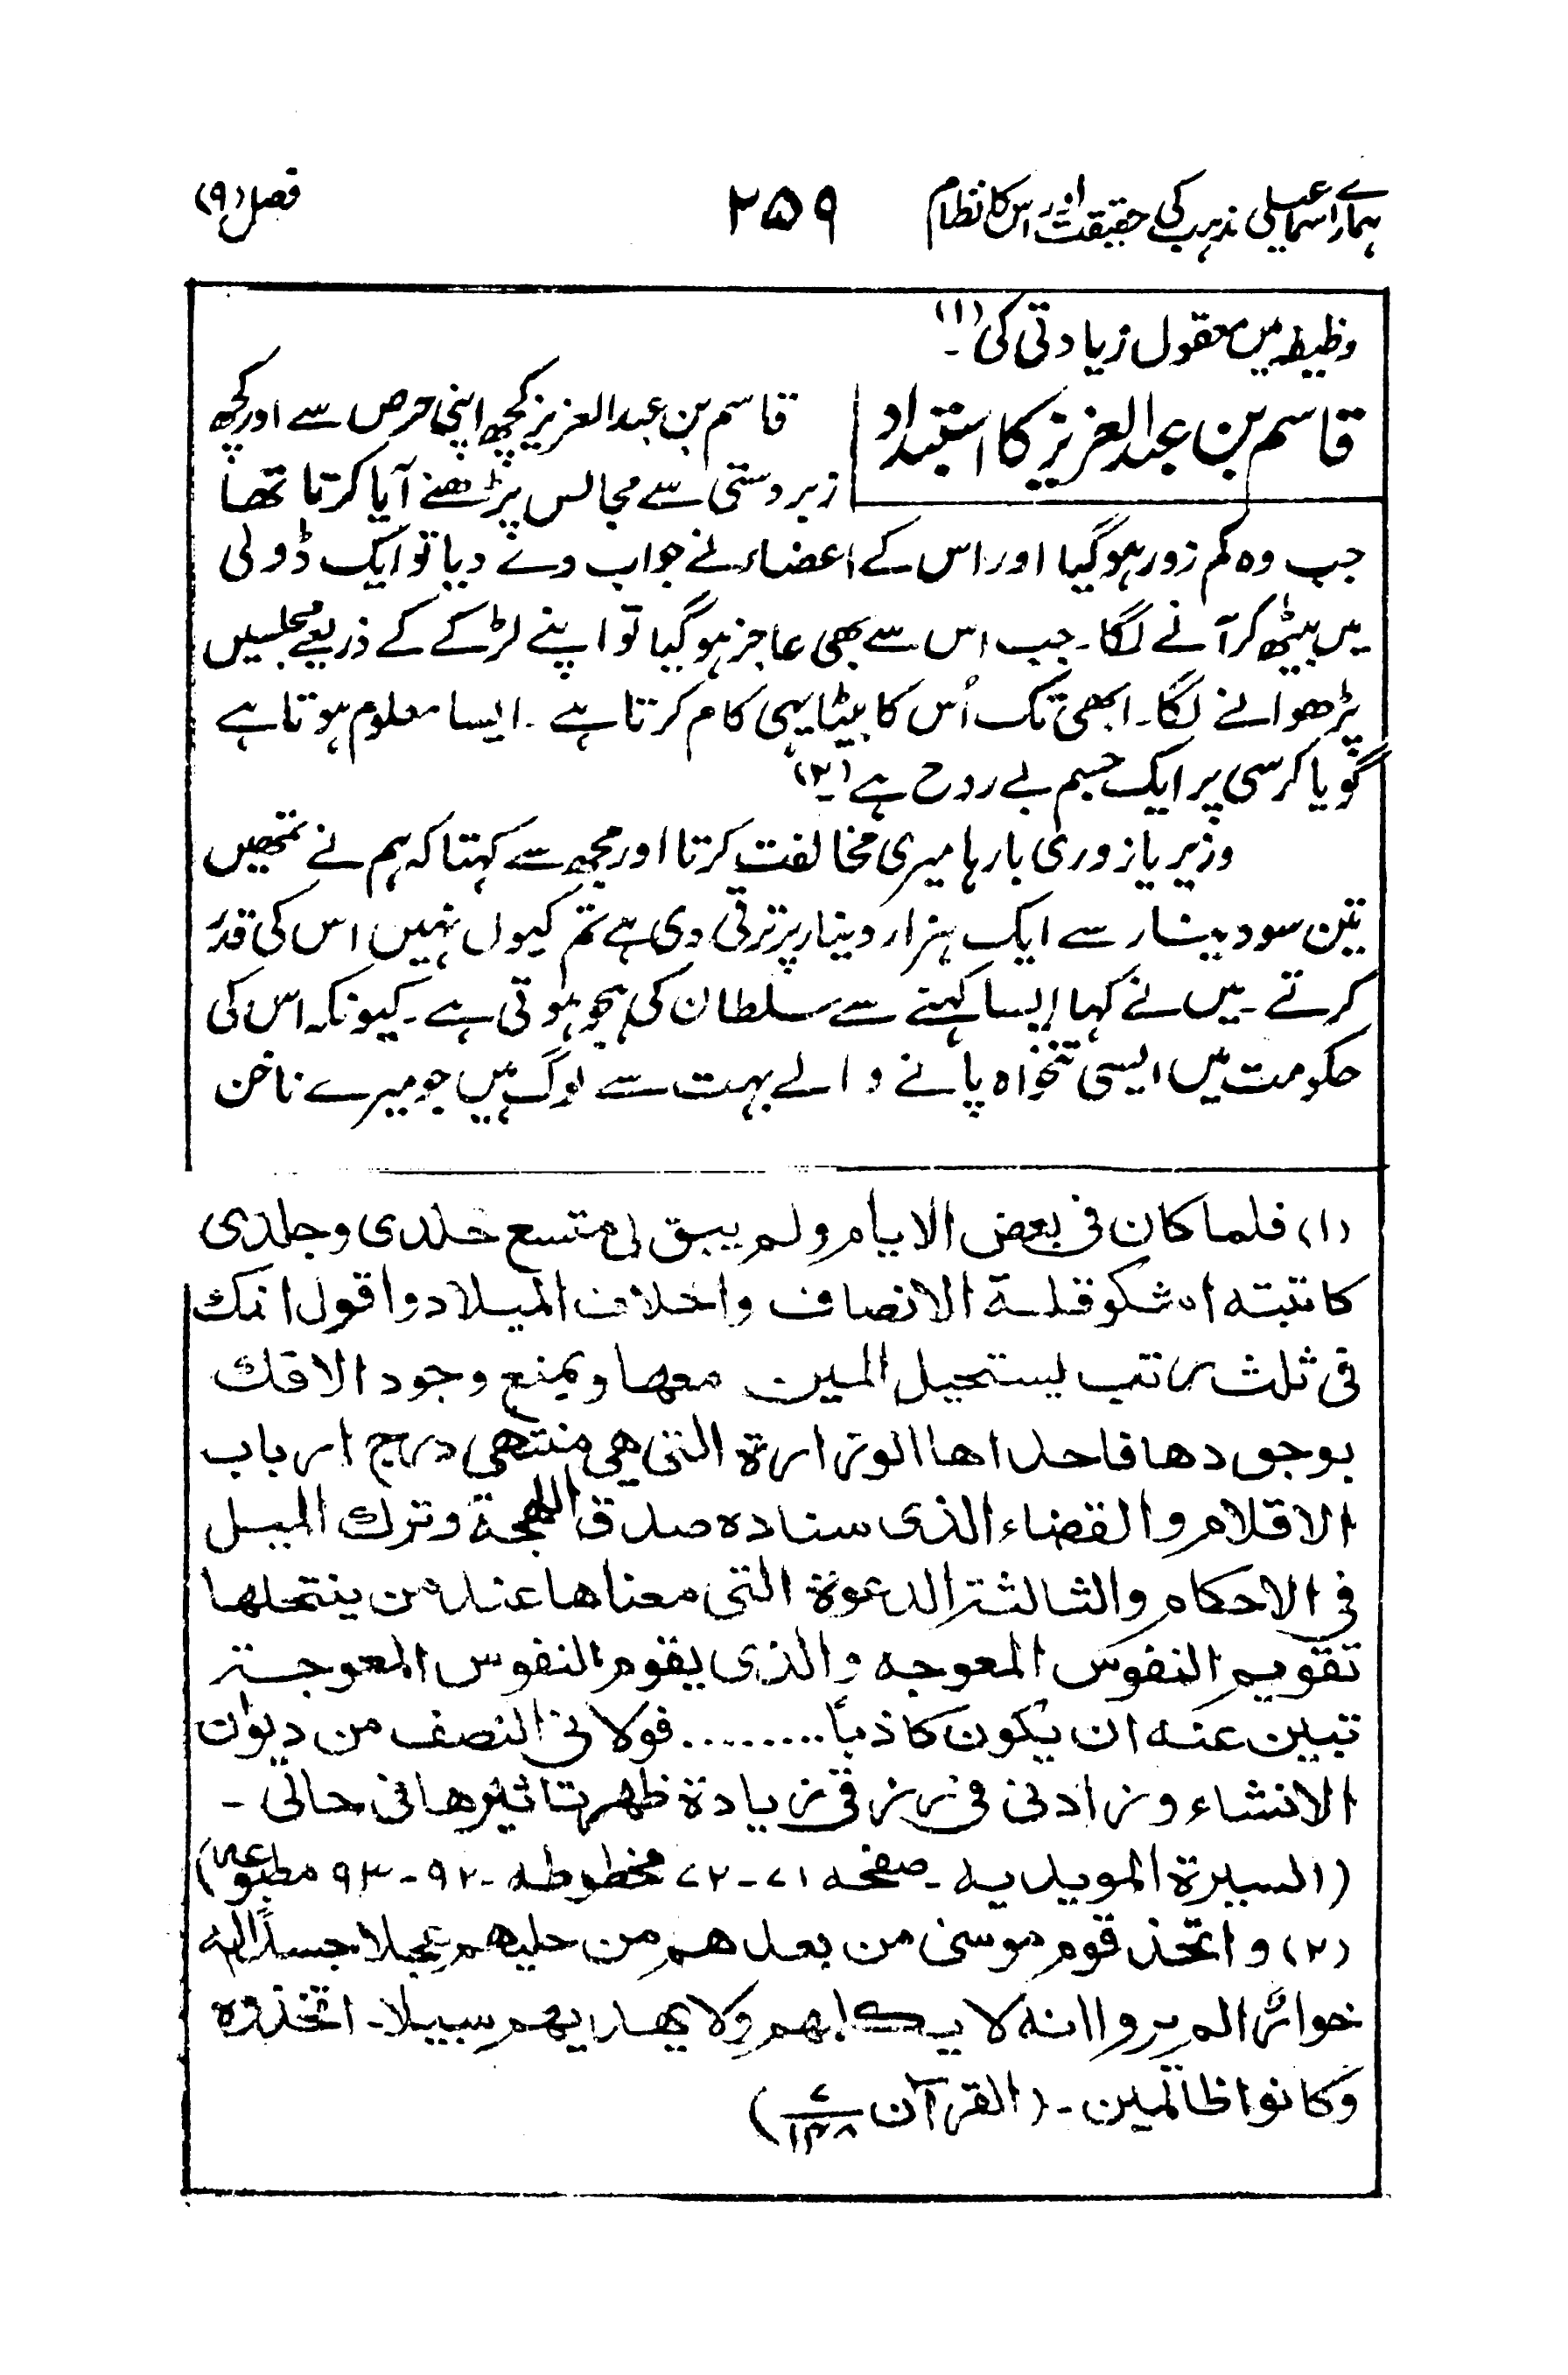 ہمارے اسماعیلی مذہب کی حقیقت اور اس کا نظام ۲۵۹ فصل (۹)
وظیفہ میں معقول زیادتی کی (۱)۔
قاسم بن عبدالعزیز کا استبداد
قاسم بن عبدالعزیز کچھ اپنی حرص سے اور کچھ
زبردستی سے مجالس پڑھنے آیا کرتا تھا
جب وہ کم زور ہو گیا اور اس کے اعضاء نے جواب دے دیا تو ایک ڈولی
میں بیٹھ کر آنے لگا۔ جب اس سے بھی عاجز ہو گیا تو اپنے لڑکے کے ذریعے مجلسیں
پڑھوانے لگا۔ ابھی تک اُس کا بیٹا یہی کام کرتا ہے۔ ایسا معلوم ہوتا ہے
گویا کرسی پر ایک جسم بے روح ہے (۲)۔
وزیر یازوری بارہا میری مخالفت کرتا اور مجھ سے کہتا کہ ہم نے تمھیں
تین سو دینار سے ایک ہزار دینار پر ترقی دی ہے تم کیوں نہیں اس کی قدر
کرتے۔ میں نے کہا ایسا کہنے سے سلطان کی ہجو ہوتی ہے۔ کیونکہ اس کی
حکومت میں ایسی تنخواہ پانے والے بہت سے لوگ ہیں جو میرے ناخن
(۱) فلما کان فی بعض الایام ولم یبق لی متسع خلدی وجلدی
کاتبتہ اشکو قلۃ الانصاف واخلاف المیلاد واقول انک
فی ثلث رتب یستحیل المین معھا ویمنع وجود الافک
بوجودھا فاحداھا الوزارۃ التی ھی منتھی درج ارباب
الاقلام والقضاء الذی سنادہ صدق اللھجۃ وترک المیل
فی الاحکام والثالثۃ الدعوۃ التی معناھا عند من ینتحلھا
تقویم النفوس المعوجہ والذی یقوم النفوس المعوجۃ
تبین عنہ ان یکون کاذباً ......... فولانی النصف من دیوان
الانشاء وزادنی فی رزقی زیادۃ ظھر تاثیرھا فی حالی ۔
(السیرۃ المویدیہ ۔ صفحہ ۷۱-۷۲ مخطوطہ ۔ ۹۲-۹۳ مطبوعہ)
(۲) واتخذ قوم موسیٰ من بعدھم من حلیھم عجلا جسداً لہ
خوار الم یروا انہ لا یکلمھم ولا یھدیھم سبیلا۔ اتخذوہ
وکانوا ظالمین ۔ (القرآن ۷/۱۴۸)